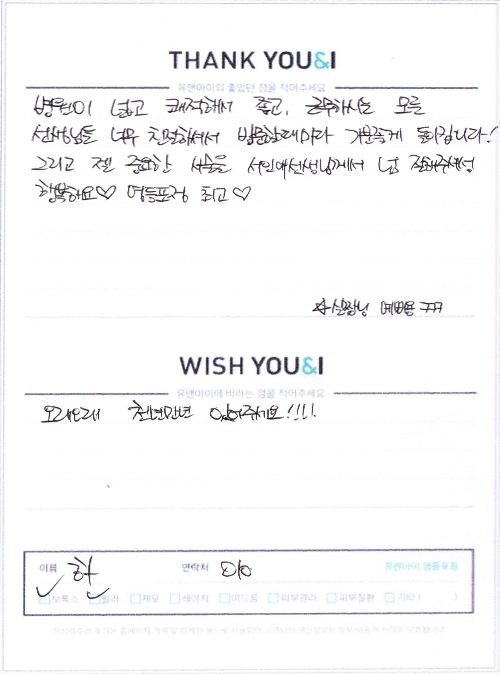 THANK YOU&I
유앤아이의 좋았던 점을 적어주세요
병원이 넓고 쾌적해서 좋고, 근무하시는 모든
선생님들 너무 친절하셔서 방문할때마다 기분좋게 들립니다!
그리고 젤 중요한 시술을 서인애선생님께서 넘 잘해주셔서
행복해요♡ 영등포점 최고♡
실장님 예뻐용 ㅋㅋㅋ
WISH YOU&I
유앤아이에 바라는 점을 적어주세요
오래오래 천년만년 있어주세요!!!!
이름 한 연락처 010 유앤아이 영등포점
보톡스 필러 제모 레이저 여드름 피부관리 피부질환 기타 ( )